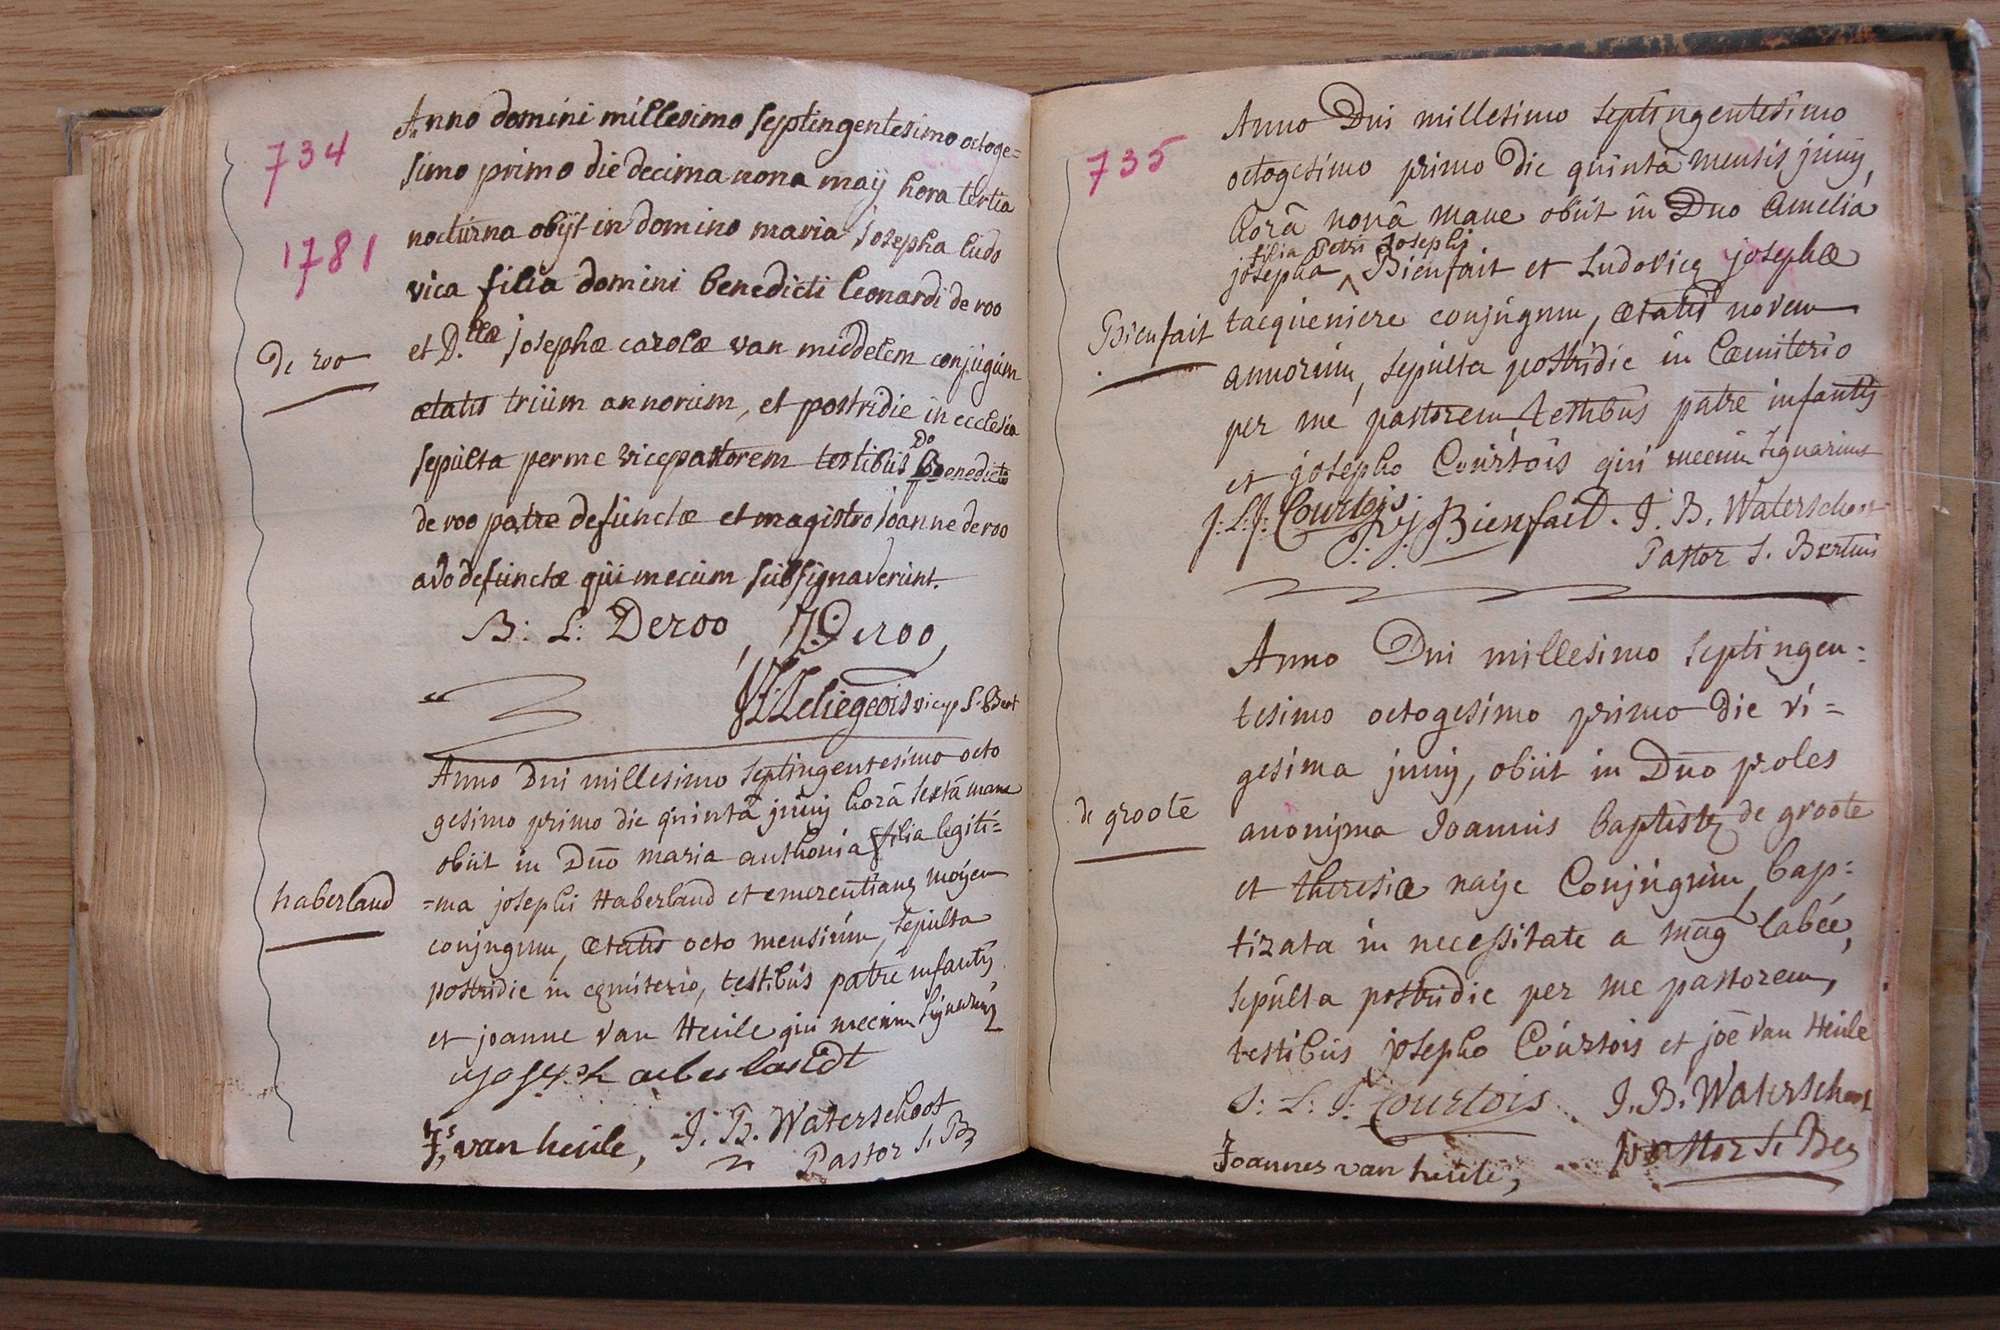 734
1781
Anno domini millesimo septingentesimo octoge=
simo primo die decima nona maij hora tertia
nocturna obijt in domino maria Josepha ludo
vica filia domini benedicti leonardi de roo
de roo
et D.llæ Josephæ carolæ van middelem conjugum
ætatis trium annorum, et postridie in ecclesia
sepulta per me vicepastorem testibus Do Benedicto
de roo patre defunctæ et magistro Joanne de roo
avo defunctæ qui mecum subsignaverunt.
B: L: Deroo, J Deroo,
Leliegeois vicep S. Bert
Anno Dni millesimo septingentesimo octo
gesimo primo die quintâ junij horâ sextâ mane
obiit in Dno maria anthonia filia legiti=
haberland
=ma josephi Haberland et emerentianæ moÿen
conjugum, ætatis octo mensium, sepulta
postridie in cemiterio, testibus patre infantis
et joanne van Heule qui mecum signarunt
Joseph aberlandt
Js van heule, J. B. Waterschoot
Pastor S. B
735
Anno Dni millesimo septingentesimo
octogesimo primo die quintâ mensis junij,
horâ nonâ mane obiit in Dno Amelia
filia Petri Josephi
josepha ^ Bienfait et Ludovicæ josephæ
Bienfait
tacqueniere conjugum, ætatis novem
annorum, sepulta postridie in Cæmiterio
per me pastorem testibus patre infantis
et josepho Courtois qui mecum signarunt
J: L: J: Courtois. P. J. Bienfait. J. B. Waterschoot
Pastor S. Bertini
Anno Dni millesimo septingen=
tesimo octogesimo primo die vi=
gesima junij, obiit in Dno proles
de groote
anonijma Joannis baptistæ de groote
et theresiæ naije Conjugum, bap=
tizata in necessitate a mag labée,
sepulta postridie per me pastorem,
testibus josepho Courtois et joe van Heule
J: L: J. Courtois. J. B. Waterschoot
Joannes van heule, Pastor S. Ber